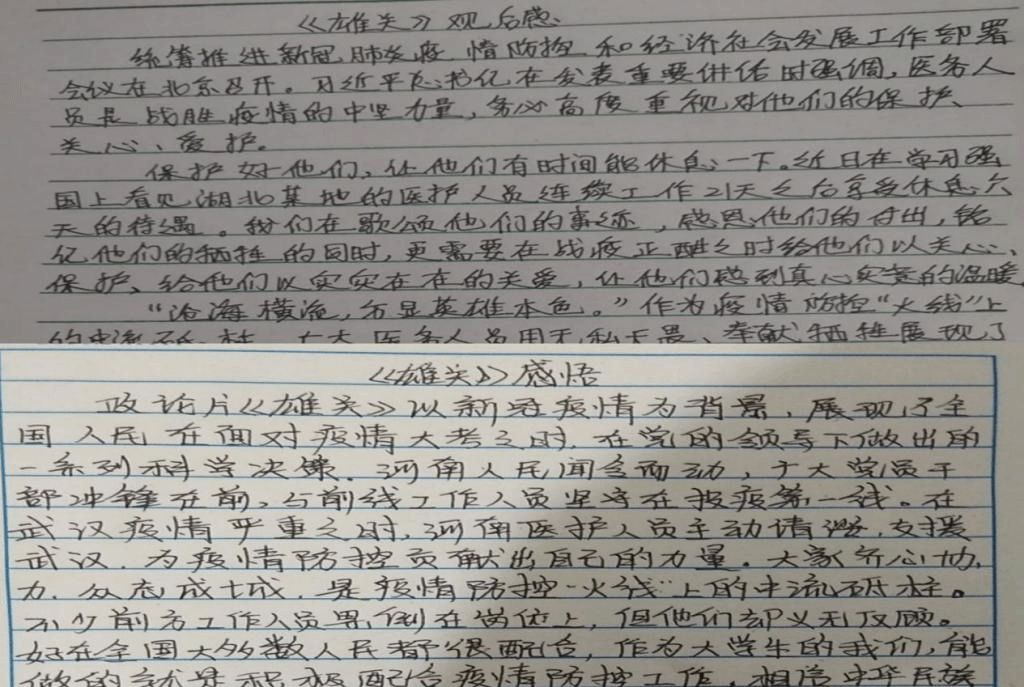 《雄关》观后感
统筹推进新冠肺炎疫情防控和经济社会发展工作部署
会议在北京召开。习近平总书记在发表重要讲话时强调,医务人
员是战胜疫情的中坚力量,务必高度重视对他们的保护、
关心、爱护。
保护好他们,让他们有时间能休息一下。近日在学习强
国上看见湖北某地的医护人员连续工作21天之后享受休息六
天的待遇。我们在歌颂他们的事迹,感恩他们的付出,铭
记他们的牺牲的同时,更需要在战疫正酣之时给他们以关心、
保护、给他们以实实在在的关爱,让他们感到真心实意的温暖。
“沧海横流,方显英雄本色。”作为疫情防控“火线”上
的中流砥柱,广大医务人员用无私无畏、奉献牺牲展现了
《雄关》感悟
政论片《雄关》以新冠疫情为背景,展现了全
国人民在面对疫情大考之时,在党的领导下做出的
一系列科学决策.河南人民闻令而动,广大党员干
部冲锋在前,与前线工作人员坚守在抗疫第一线。在
武汉疫情严重之时,河南医护人员主动请缨,支援
武汉.为疫情防控贡献出自己的力量。大家齐心协
力.众志成城.是疫情防控“火线”上的中流砥柱。
不少前方工作人员累倒在岗位上,但他们却义无反顾。
好在全国大多数人民都很配合,作为大学生的我们,能
做的就是积极配合疫情防控工作,相信中华民族